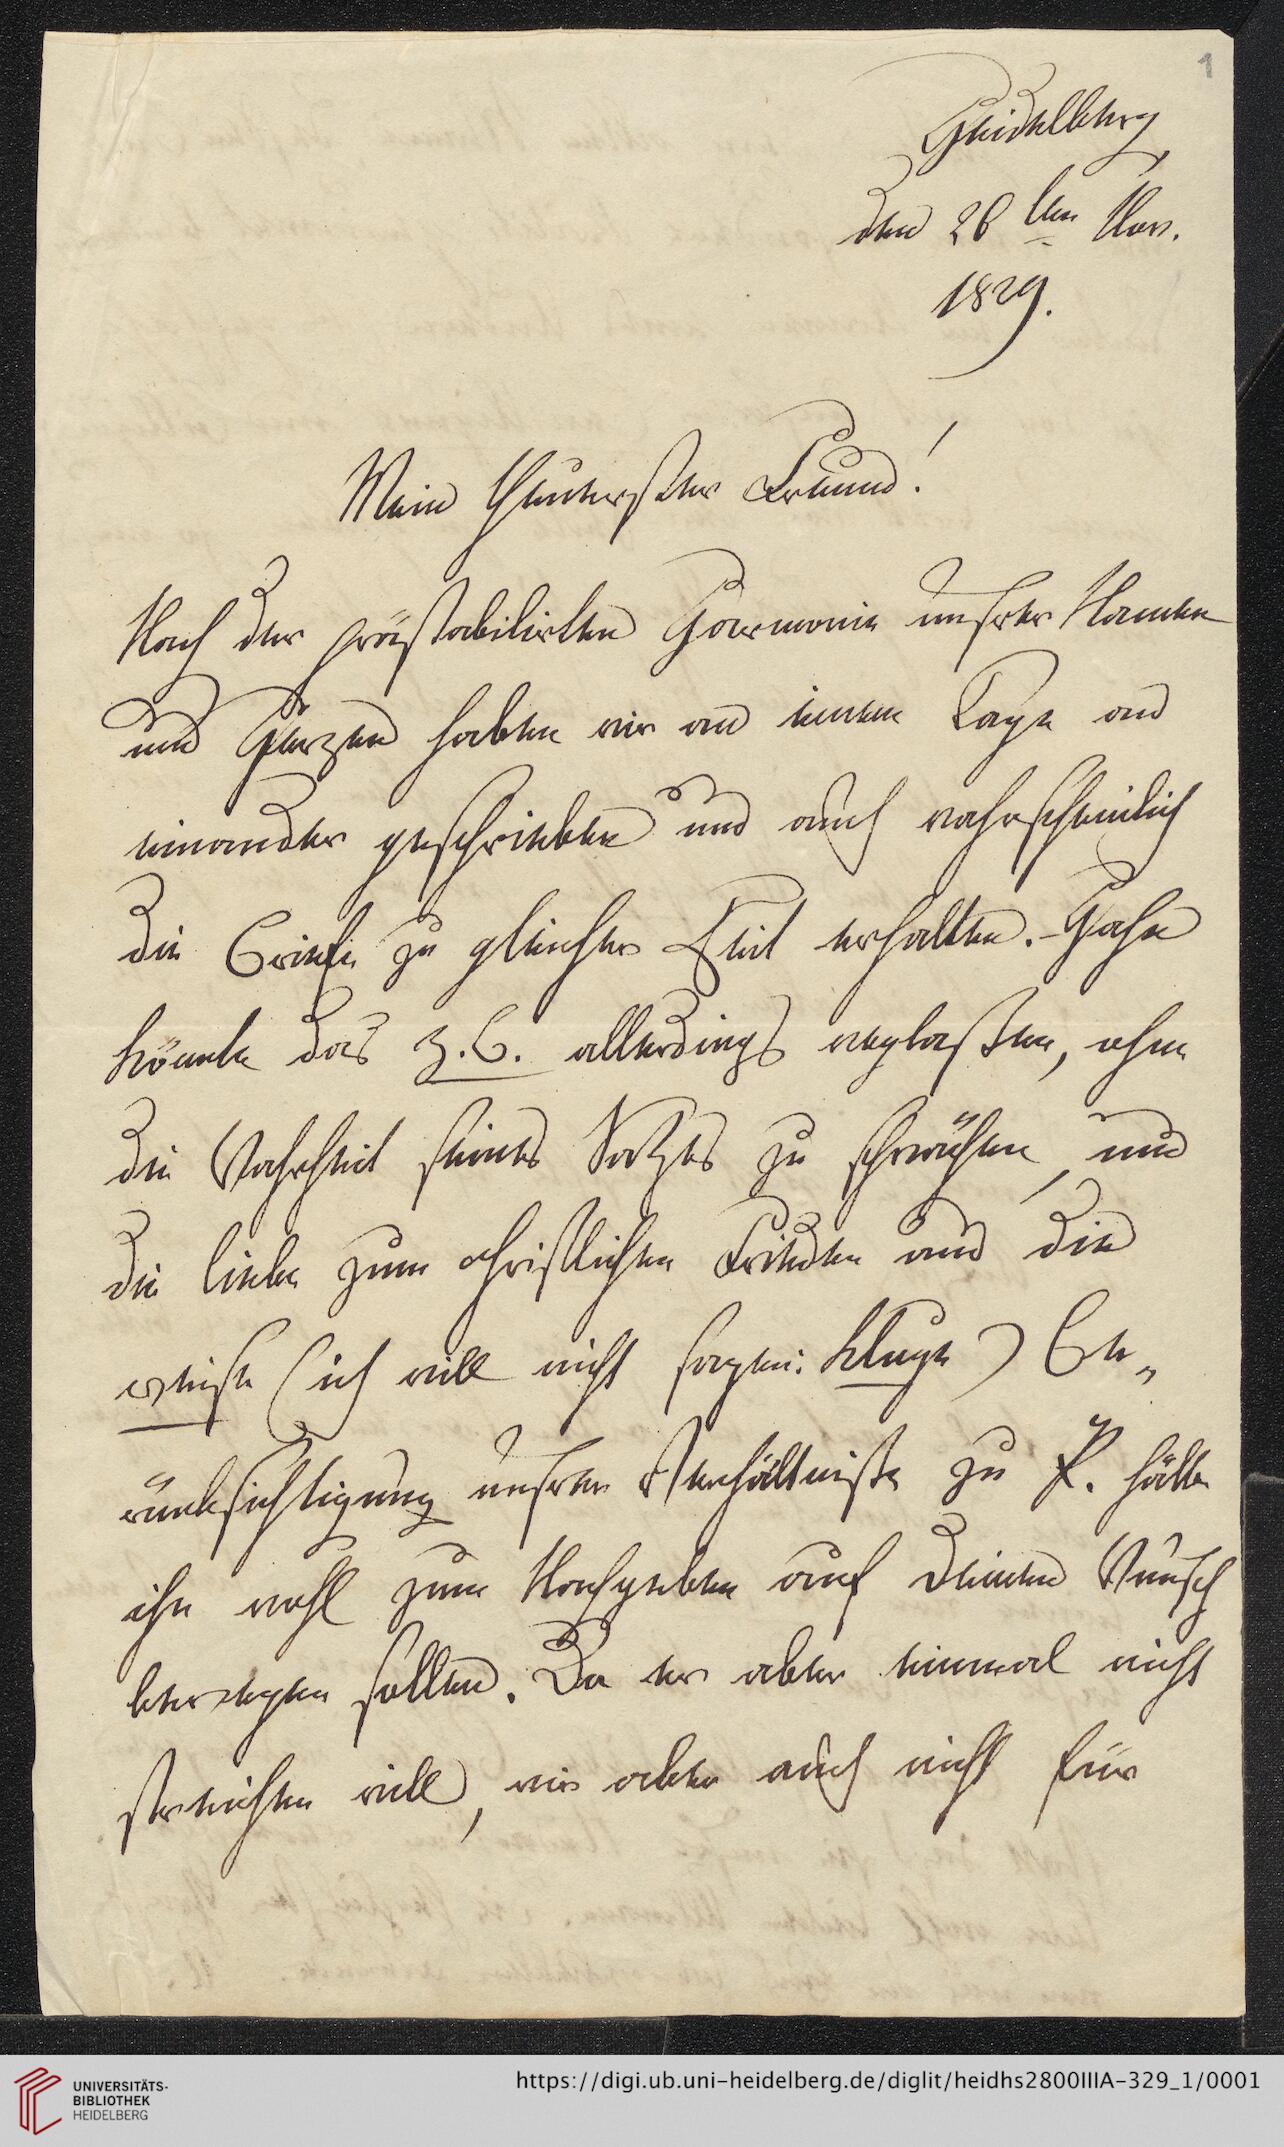 1
Heidelberg
den 26 ten Nov.
1829.
Mein Theuerster Freund!
Nach der prästabilirten Harmonie unsrer Namen
und Herzen haben wir an einem Tage an
einander geschrieben und auch wahrscheinlich
die Briefe zu gleicher Zeit erhalten. –
könnte das z. B. allerdings weglassen, ohne
die Wahrheit seines Satzes zu schwächen, und
die Liebe zum christlichen Frieden und die
weise (ich will nicht sagen: kluge) Be„
rücksichtigung unsrer Verhältnisse zu P. hätte
ihn wohl zum Nachgeben auf Deinen Wunsch
bewegen sollen. Da er aber einmal nicht
streichen will, wir aber auch nicht für
UNIVERSITÄTS-
BIBLIOTHEK
HEIDELBERG
https://digi.ub.uni-heidelberg.de/diglit/heidhs2800IIIA-329_1/0001